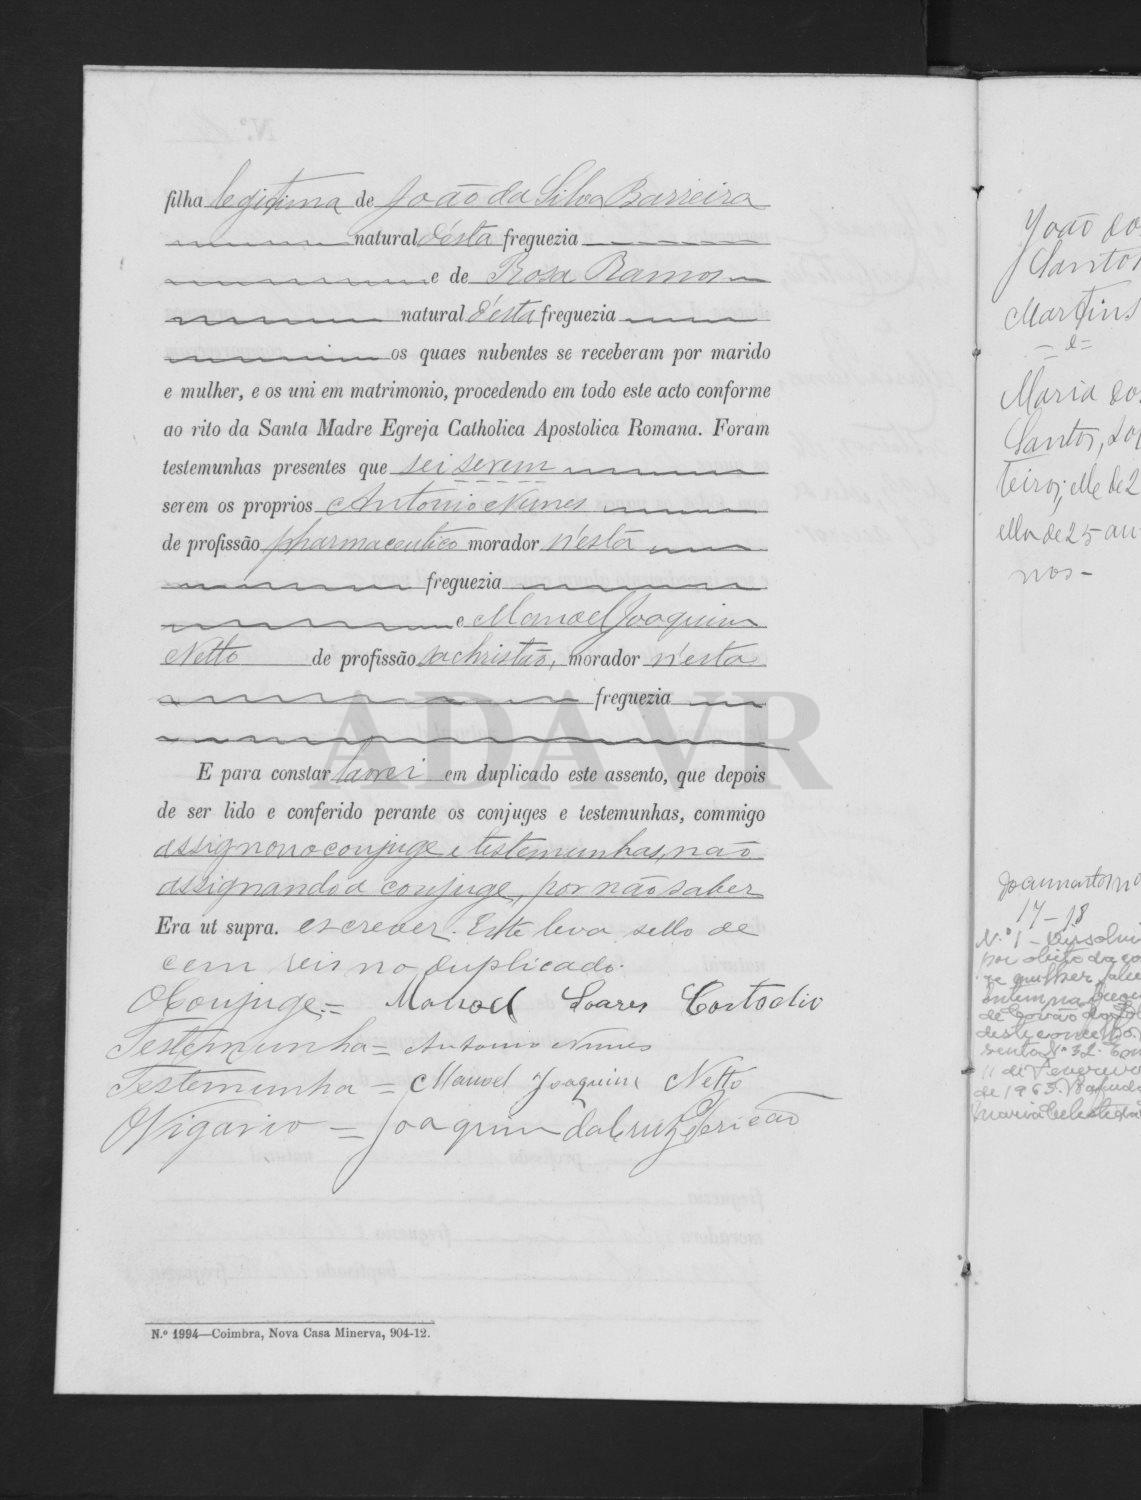 filha legitima de João da Silva Barreira
natural d'esta freguezia
e de Rosa Ramos
natural d'esta freguezia
os quaes nubentes se receberam por marido
e mulher, e os uni em matrimonio, procedendo em todo este acto conforme
ao rito da Santa Madre Egreja Catholica Apostolica Romana. Foram
testemunhas presentes que sei serem
serem os proprios Antonio Nunes
de profissão pharmaceutico morador n'esta
freguezia
e Manoel Joaquim
Netto de profissão sachristão, morador n'esta
freguezia
ADAVR
E para constar lavrei em duplicado este assento, que depois
de ser lido e conferido perante os conjuges e testemunhas, commigo
assignou o conjuge e testemunhas, não
assignando a conjuge, por não saber
Era ut supra. escrever. Este leva sello de
cem reis no duplicado.
O Conjuge = Manoel Soares Custodio
Testemunha = Antonio Nunes
Testemunha = Manoel Joaquim Netto
O Vigario = Joaquim da Cruz
N.º 1994—Coimbra, Nova Casa Minerva, 904-12.
João do
Santos
Martins
= e =
Maria do
Santos, sol
teiros; elle de 2
ella de 25 an
nos -
17-18
N.º 1 -
por obito da
de
deste concelho,
11 de Fevereiro
de 1963.
Maria Celeste